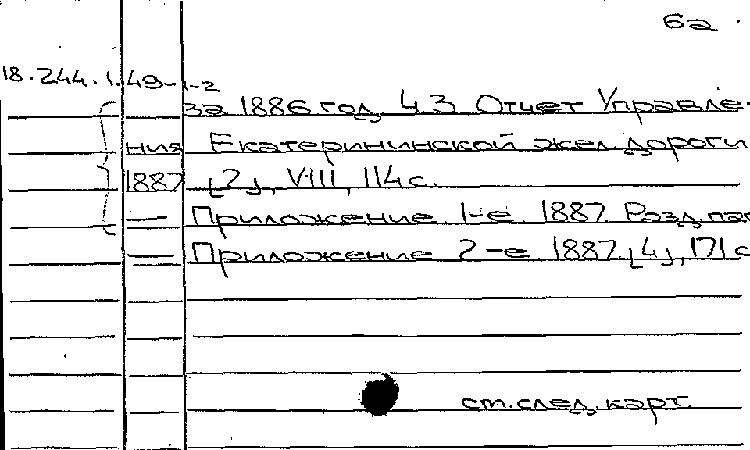 6а
18.244.1.49-1-2
за 1886 год. Ч 3 Отчет Управле-
ния Екатерининской жел. дороги
1887 [2], VIII, 114 с.
— Приложение 1-е. 1887. Разд. паг
— Приложение 2-е 1887. [4], 171 с
ст. след. карт.